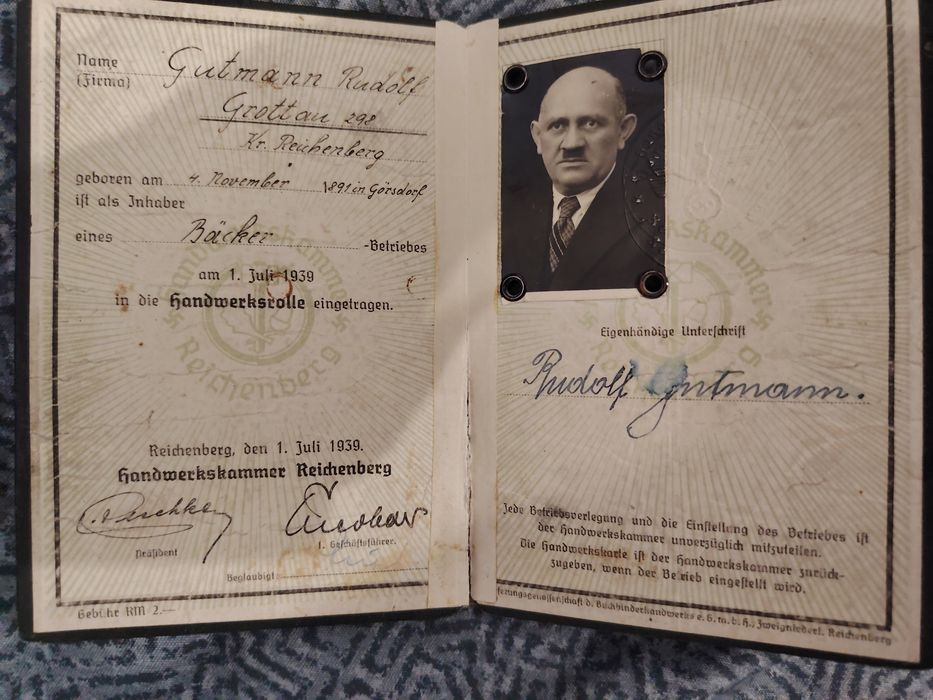 Name Gutmann Rudolf
(Firma)
Grottau 298
Kr. Reichenberg
geboren am 4. November 1891 in Görsdorf
ist als Inhaber
eines Bäcker -Betriebes
am 1. Juli 1939
in die Handwerksrolle eingetragen.
Handwerkskammer
Reichenberg
Reichenberg, den 1. Juli 1939.
Handwerkskammer Reichenberg
Präsident
1. Geschäftsführer.
Beglaubigt:
Gebühr RM 2.—
Eigenhändige Unterschrift
Rudolf Gutmann.
Jede Betriebsverlegung und die Einstellung des Betriebes ist
der Handwerkskammer unverzüglich mitzuteilen.
Die Handwerkskarte ist der Handwerkskammer zurück-
zugeben, wenn der Betrieb eingestellt wird.
d. Buchbinderhandwerks e. G. m. b. H., Zweigniederl. Reichenberg